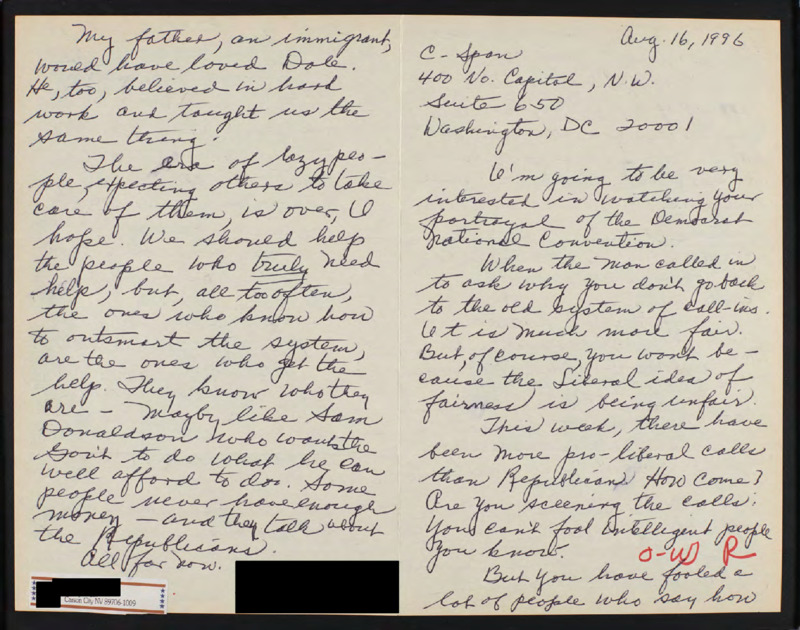 Aug. 16, 1996
C-Span
400 No. Capitol, N.W.
Suite 650
Washington, DC 20001
I'm going to be very
interested in watching your
portrayal of the Democrat
National Convention.
When the man called in
to ask why you don't go back
to the old system of call-ins.
It is much more fair.
But, of course, you won't be-
cause the liberal idea of
fairness is being unfair.
This week, there have
been more pro-liberal calls
than Republican. How come?
Are you sceening the calls?
You can't fool intelligent people
you know.
O-W R
But you have fooled a
lot of people who say how
My father, an immigrant,
would have loved Dole.
He, too, believed in hard
work and taught us the
same thing.
The era of lazy peo-
ple, expecting others to take
care of them, is over, I
hope. We should help
the people who truly need
help, but, all too often,
the ones who know how
to outsmart the system,
are the ones who get the
help. They know who they
are - Mayby like Sam
Donaldson who wants the
Gov't to do what he can
well afford to do. Some
people never have enough
money - and they talk about
the Republicans.
All for now.
Carson City NV 89706-1009